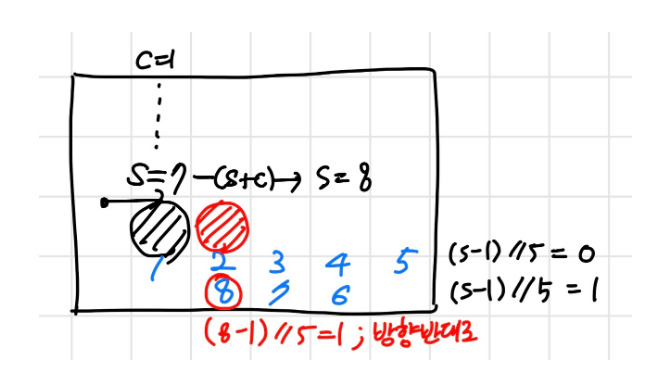 C=1
S=7 -(s+c)→ S=8
1 2 3 4 5
8 7 6
(s-1)//5 = 0
(s-1)//5 = 1
(8-1)//5=1 ; 방향반대로